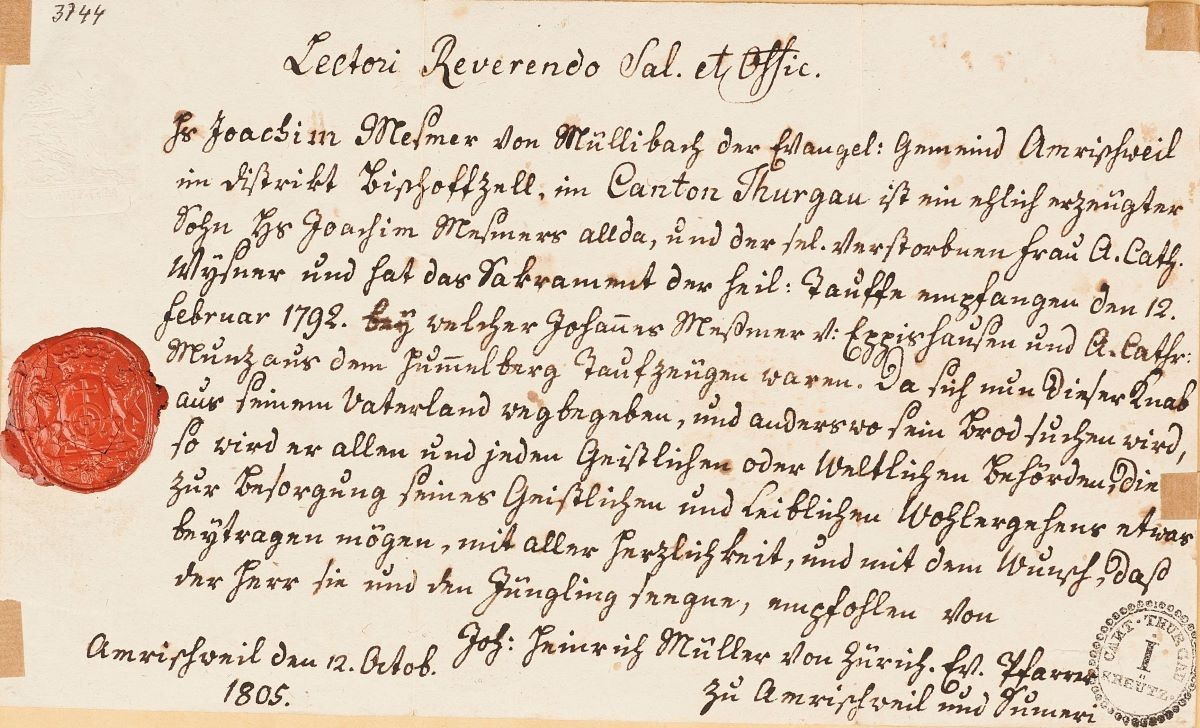 3744
Lectori Reverendo Sal. et Offic.
Hs Joachim Meßmer von Müllibach der Evangel: Gemeind Amrischweil
im Distrikt Bischoffzell, im Canton Thurgau ist ein ehlich erzeügter
Sohn Hs Joachim Meßmers allda, und der sel. verstorbnen Frau A. Cath.
Wyßner und hat das Sakrament der heil: Tauffe empfangen den 12.
Februar 1792. bey welcher Johañes Meßmer v: Eppishausen und A. Cathr:
Muntz aus dem Hum̃elberg Taufzeügen waren. Da sich nun dieser Knab
aus seinem Vaterland wegbegeben, und anderswo sein Brod suchen wird,
so wird er allen und jeden Geistlichen oder Weltlichen Behörden, die
zur Besorgung seines Geistlichen und Leiblichen Wohlergehens etwas
beytragen mögen, mit aller Herzlichkeit, und mit dem Wunsch, daß
der Herr sie und den Jüngling seegne, empfohlen von
Joh: Heinrich Müller von Zürich. Ev. Pfarrer
zu Amrischweil und Sumeri
Amrischweil den 12. Octob.
1805.
CANT. THURGAU
1
KREUTZ.